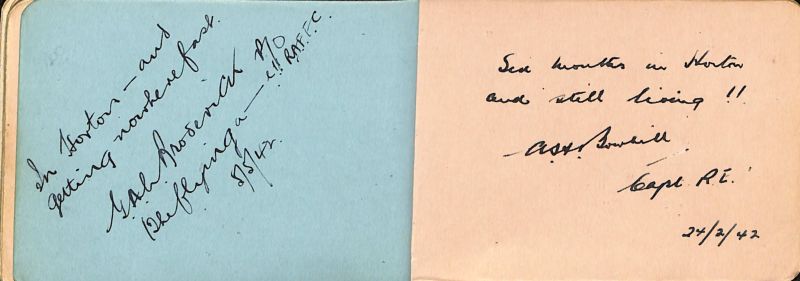 In Horton — and
getting nowhere fast.
G.A.L. Broderick P/O
The flying a — R.A.F.F.C.
5/5/42.
Six months in Horton
and still living !!
Bowhill.
Capt R.E.
24/2/42